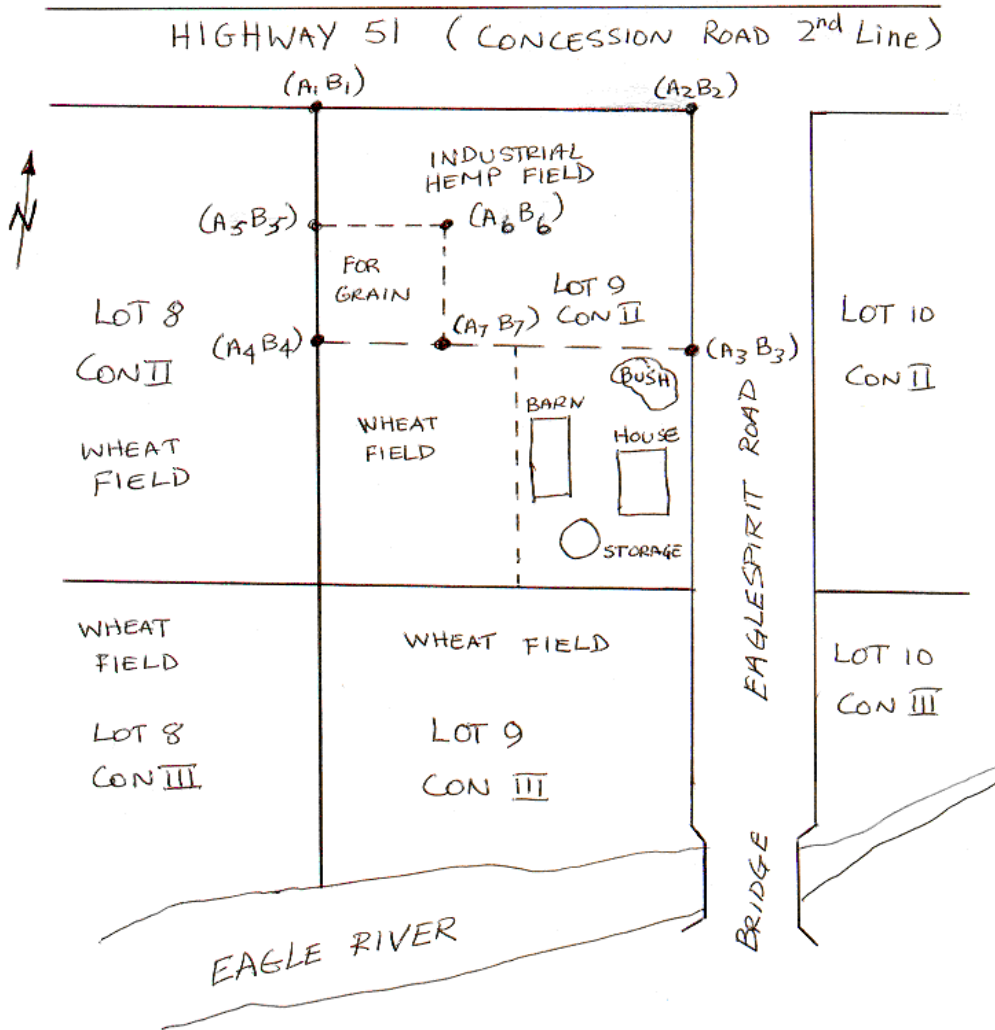 HIGHWAY 51 (CONCESSION ROAD 2nd Line)
(A1B1)
(A2B2)
INDUSTRIAL
HEMP FIELD
N
(A5B5)
(A6B6)
FOR
GRAIN
LOT 8
CON II
LOT 9
CON II
LOT 10
CON II
(A4B4)
(A7B7)
(A3B3)
BUSH
WHEAT
FIELD
WHEAT
FIELD
BARN
HOUSE
STORAGE
EAGLESPIRIT ROAD
WHEAT
FIELD
WHEAT FIELD
LOT 8
CON III
LOT 9
CON III
LOT 10
CON III
BRIDGE
EAGLE RIVER